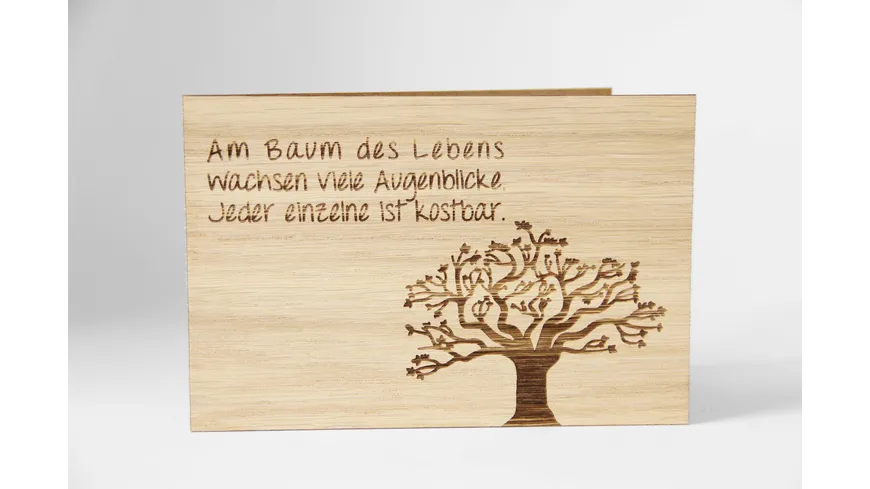 Am Baum des Lebens
wachsen viele Augenblicke.
Jeder einzelne ist kostbar.